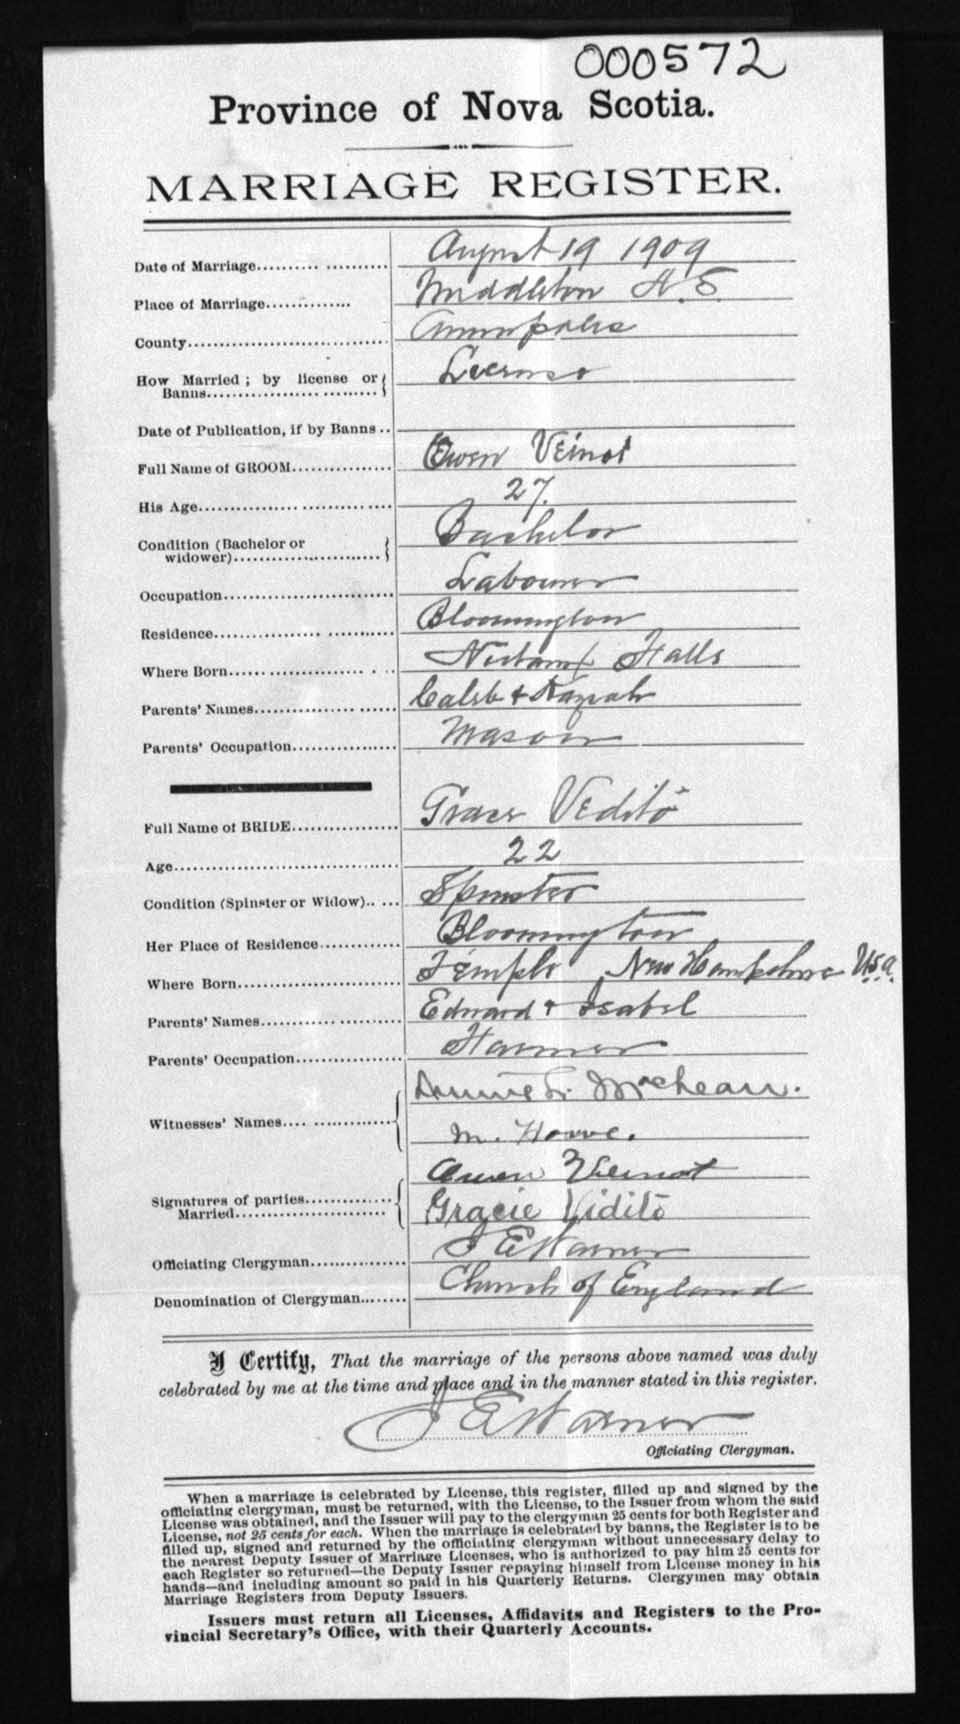 000572
Province of Nova Scotia.
MARRIAGE REGISTER.
Date of Marriage.......... August 19 1909
Place of Marriage............. Middleton N.S.
County.............................. Annapolis
How Married ; by license or License
Banns.........................
Date of Publication, if by Banns ..
Full Name of GROOM............... Owen Veinot
His Age............................. 27.
Condition (Bachelor or Bachelor
widower)......................
Occupation.......................... Labourer
Residence........................... Bloomington
Where Born........................ Nictaux Falls
Parents' Names.................... Caleb & Kaziah
Parents' Occupation................ Mason
Full Name of BRIDE................ Grace Vedito
Age................................. 22
Condition (Spinster or Widow)..... Spinster
Her Place of Residence............ Bloomington
Where Born........................ Temple New Hampshire U.S.A.
Parents' Names.................... Edward & Isabel
Parents' Occupation............... Farmer
Witnesses' Names.................. McLean.
M. Howe.
Signatures of parties............. Owen Veinot
Married........................ Gracie Vidito
Officiating Clergyman.............. J E Warner
Denomination of Clergyman........ Church of England
I Certify, That the marriage of the persons above named was duly
celebrated by me at the time and place and in the manner stated in this register.
J E Warner
Officiating Clergyman.
When a marriage is celebrated by License, this register, filled up and signed by the
officiating clergyman, must be returned, with the License, to the Issuer from whom the said
License was obtained, and the Issuer will pay to the clergyman 25 cents for both Register and
License, not 25 cents for each. When the marriage is celebrated by banns, the Register is to be
filled up, signed and returned by the officiating clergyman without unnecessary delay to
the nearest Deputy Issuer of Marriage Licenses, who is authorized to pay him 25 cents for
each Register so returned—the Deputy Issuer repaying himself from License money in his
hands—and including amount so paid in his Quarterly Returns. Clergymen may obtain
Marriage Registers from Deputy Issuers.
Issuers must return all Licenses, Affidavits and Registers to the Pro-
vincial Secretary's Office, with their Quarterly Accounts.